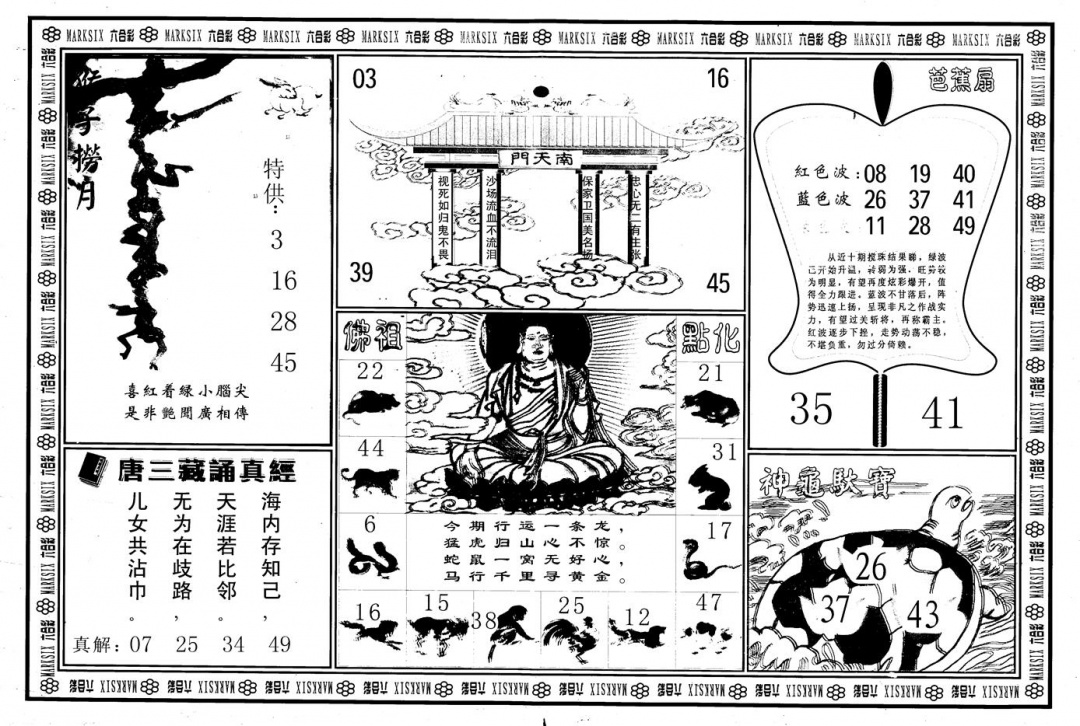 MARKSIX 六合彩 MARKSIX 六合彩 MARKSIX 六合彩 MARKSIX 六合彩 MARKSIX 六合彩 MARKSIX 六合彩 MARKSIX 六合彩 MARKSIX 六合彩 MARKSIX 六合彩 MARKSIX 六合彩
猴子撈月
特供：
3
16
28
45
喜紅着緑小腦尖
是非艷聞廣相傳
唐三藏誦真經
海内存知己，
天涯若比邻。
无为在歧路，
儿女共沾巾。
真解：07 25 34 49
03
16
門天南
视死如归鬼不畏
沙场流血不流泪
保家卫国美名扬
忠心无二有主张
39
45
佛祖
點化
22
21
44
31
6
17
今期行运一条龙，
猛虎归山心不惊。
蛇鼠一窝无好心，
马行千里寻黄金。
16
15
38
25
12
47
芭蕉扇
紅色波：08 19 40
藍色波 26 37 41
11 28 49
从近十期搅珠结果睇，绿波
己开始升温，转弱为强，旺势较
为明显，有望再度炫彩爆开，值
得全力跟进。蓝波不甘落后，阵
势迅速上扬，呈现非凡之作战实
力，有望过关斩将，再称霸主。
红波逐步下挫，走势动荡不稳，
不堪负重，勿过分倚赖。
35
41
神龜馱寶
26
37
43